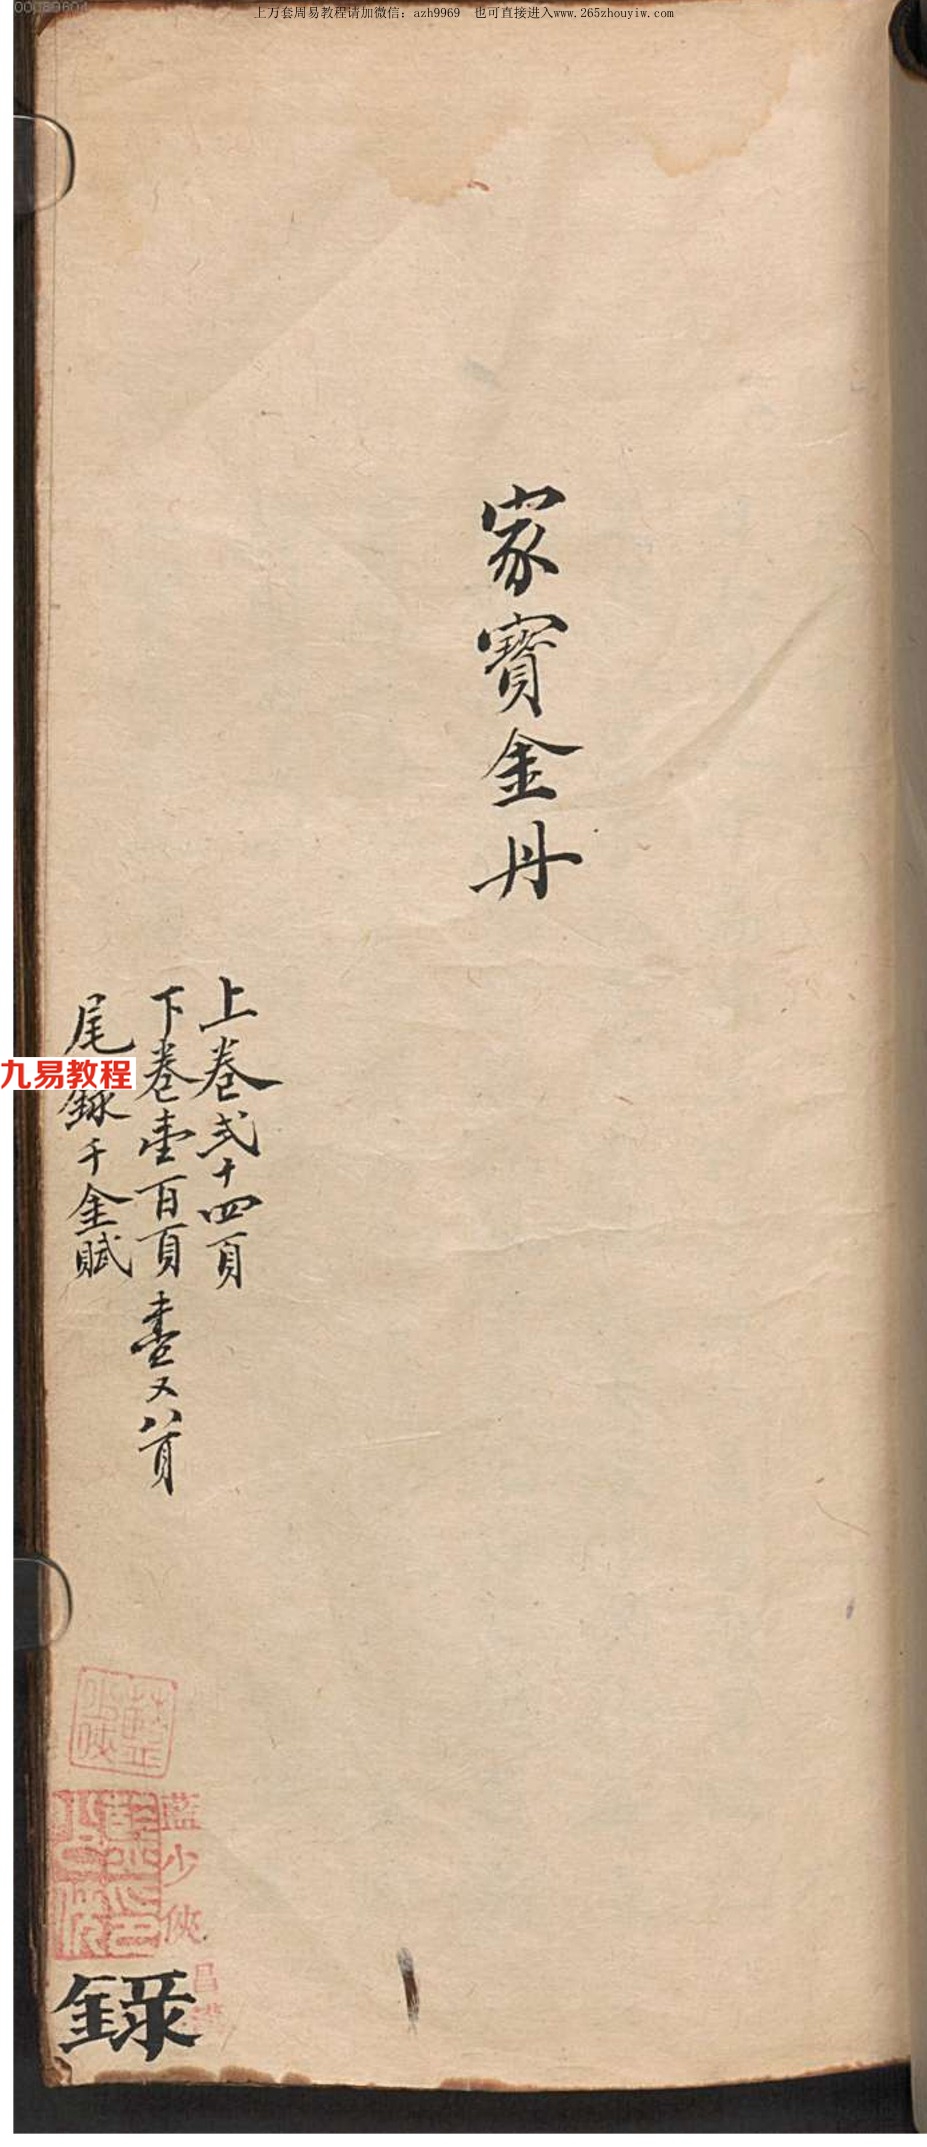 00089604
上万套周易教程请加微信：azh9969 也可直接进入www.265zhouyiw.com
家寶金丹
上卷弍十四頁
下卷壹百頁
尾錄千金賦
九易教程
藍少俠
錄